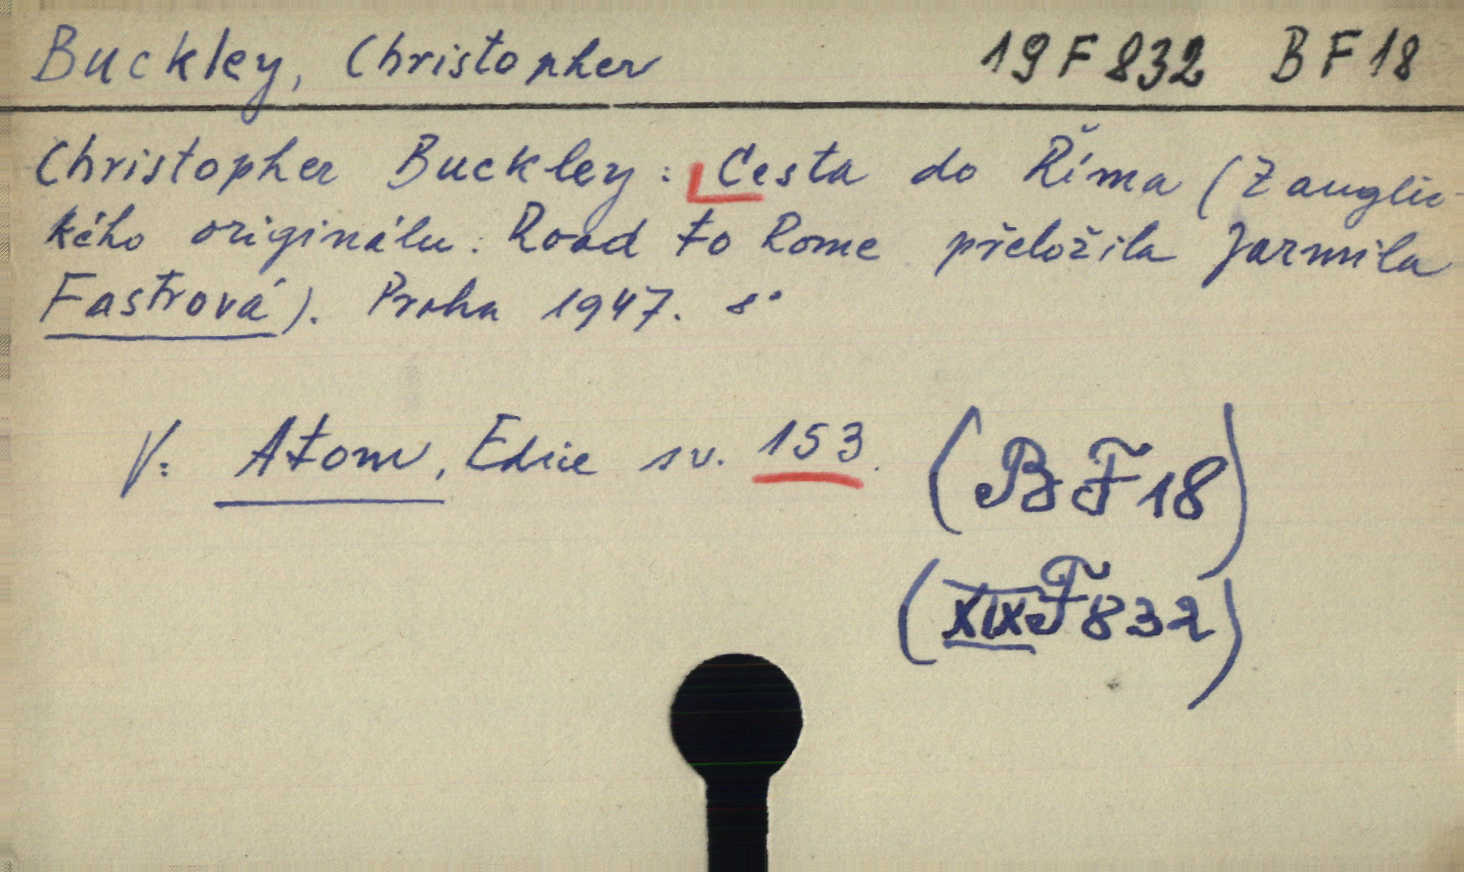 Buckley, Christopher 19 F 832 B F 18
Christopher Buckley: Cesta do Říma (Z anglic-
kého originálu: Road to Rome přeložila Jarmila
Fastrová). Praha 1947. 8°
V: Atom, Edice sv. 153.
(B F 18)
(XIX F 832)